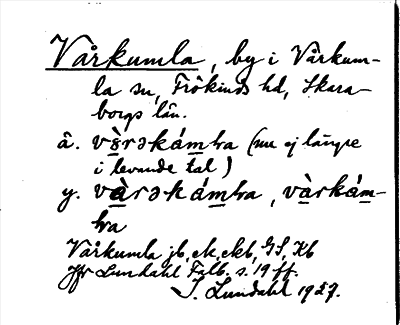 Vårkumla, by i Vårkum-
la sn, Frökinds hd, Skara-
borgs län.
ä. vs̀rəkámbra (nu ej längre
i levande tal)
y. vàrəkámbra, vàrkám-
bra
Vårkumla jb, ek, ekb, GS, Kb
Jfr Lundahl Falb. s. 19 ff.
I. Lundahl 1927.